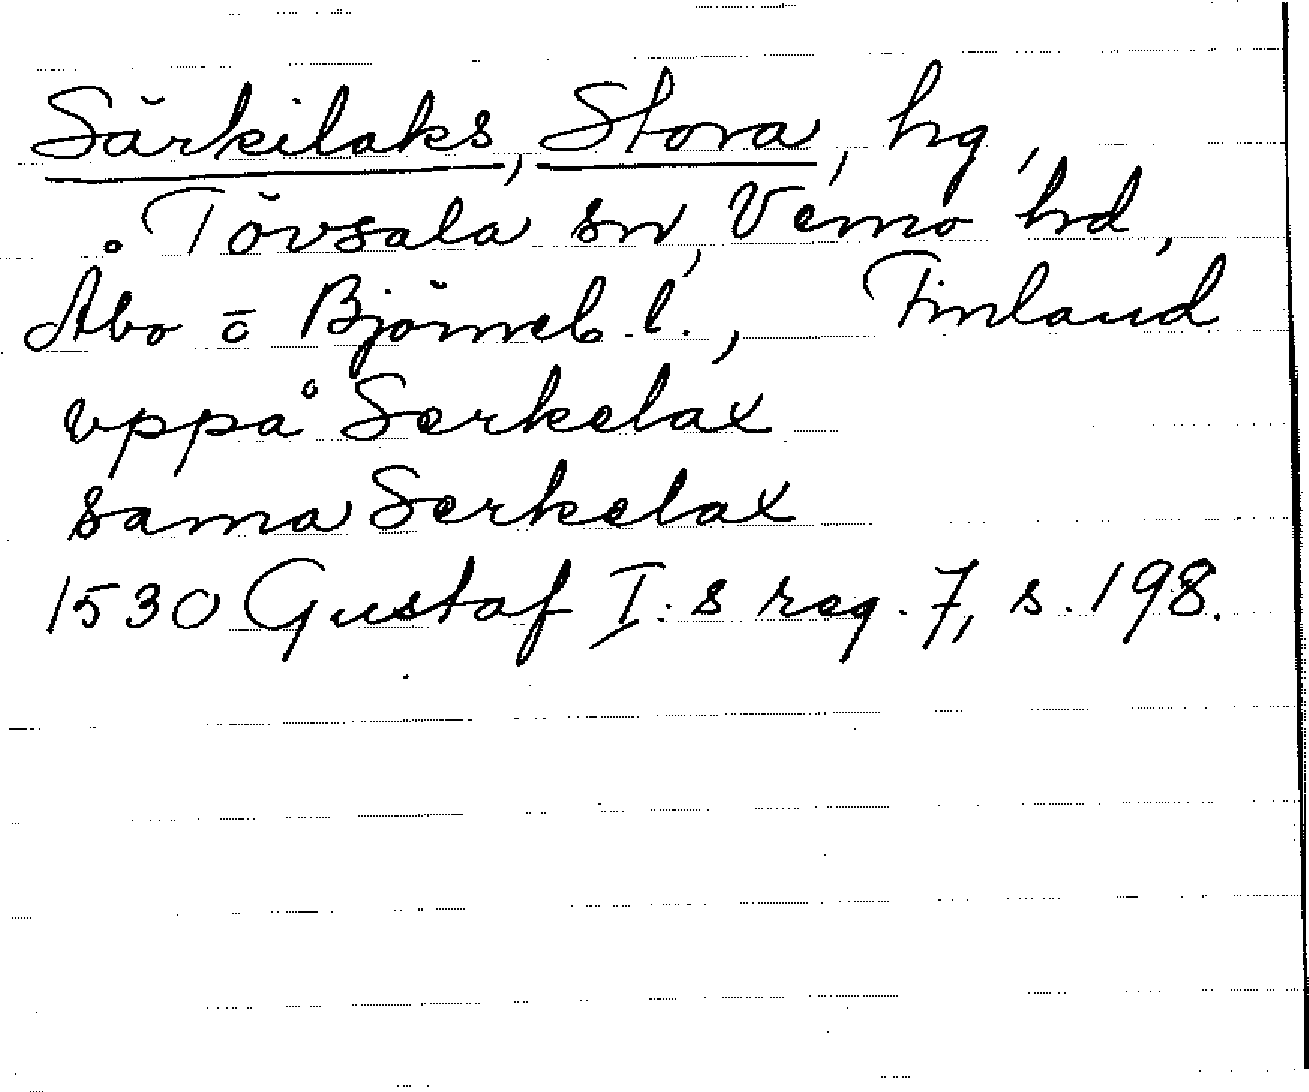 Särkilaks, Stora, hg,
Tövsala sn, Vemo hrd,
Åbo o Björneb. l., Finland
vppå Serkelax
sama Serkelax
1530 Gustaf I:s reg. 7, s. 198.